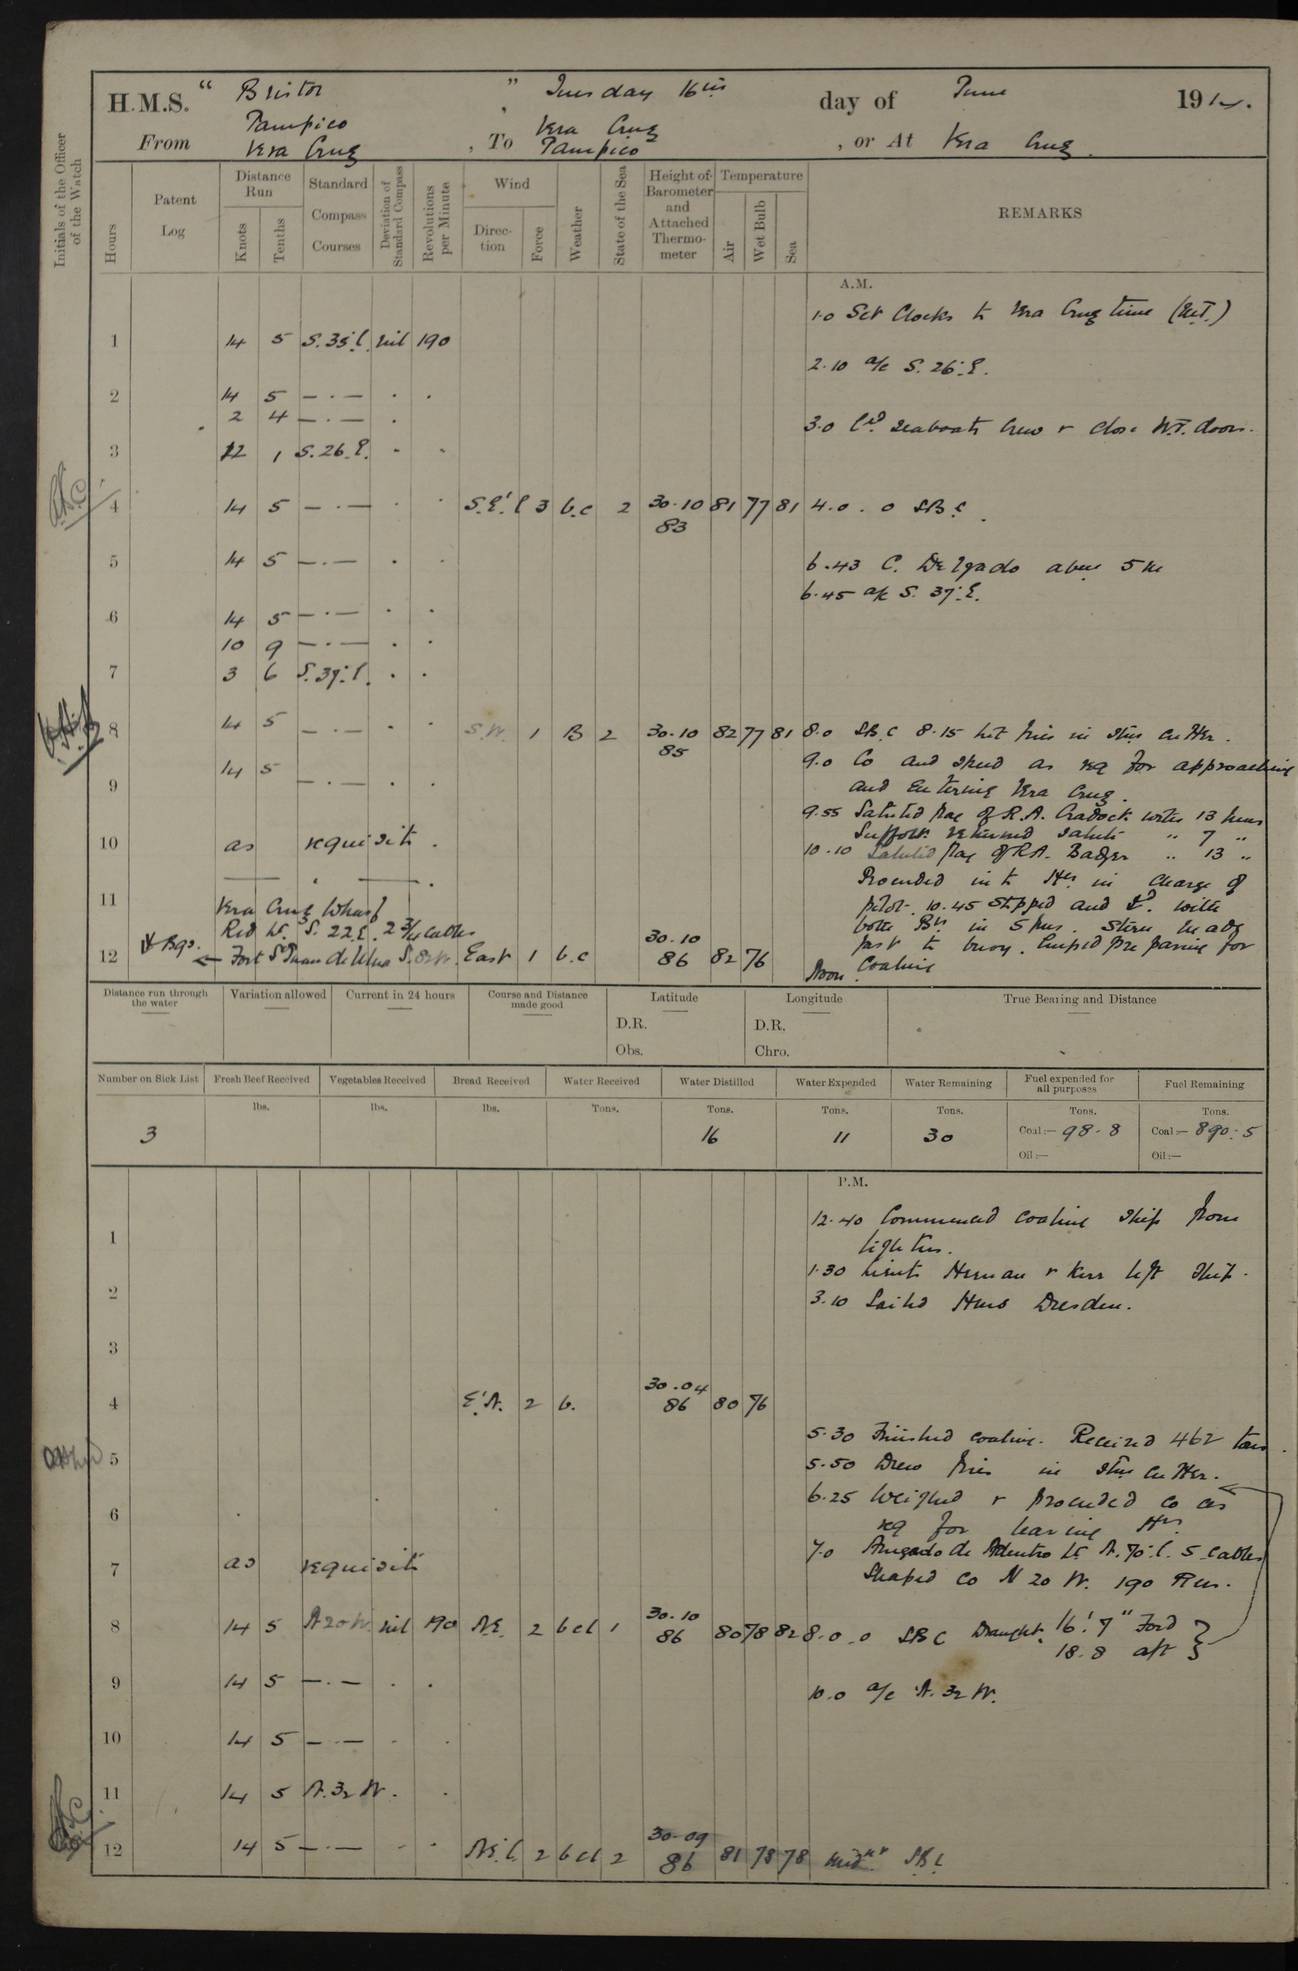 H.M.S. " Bristol " Tuesday 16th day of June 1914.
From Tampico , To Vera Cruz , or At Vera Cruz.
Vera Cruz Tampico
Initials of the Officer of the Watch
Hours
Patent Log
Distance Run
Knots
Tenths
Standard Compass Courses
Deviation of Standard Compass
Revolutions per Minute
Wind
Direction
Force
Weather
State of the Sea
Height of Barometer and Attached Thermometer
Temperature
Air
Wet Bulb
Sea
REMARKS
A.M.
1.0 Set Clocks to Vera Cruz time
1 14 5 S.35.E. nil 190
2.10 a/c S. 26.E.
2 14 5 — · — · ·
2 4 — · — ·
3.0 seaboats Crew & close W.T. doors.
3 12 1 S.26.E. - -
4 14 5 — · — · · S.E'E 3 b.c 2 30.10 81 77 81 4.0 . 0 SB.C.
83
5 14 5 — · — · ·
6.43 C. Delgado abeam 5 m
6.45 a/c S. 37.E.
6 14 5 — · — · ·
10 9 — · — · ·
7 3 6 S.37.E. · ·
8 14 5 — · — · · S.W. 1 B 2 30.10 82 77 81 8.0 SB.C 8.15 lit fires in stm cutter.
85
9.0 Co and speed as req for approaching
9 14 5 — · — · ·
and entering Vera Cruz.
9.55 Saluted flag of R.A. Cradock with 13 guns
Suffolk returned salute " 7 "
10 as requisite.
10.10 Saluted flag of R.A. Badger " 13 "
Proceeded into Hr in charge of
11 Vera Cruz Wharf
pilot. 10.45 Stopped and with
Red Lt. S. 22.E. 2 3/4 Cables
both Brs in 5 fms. Stern heads
12 Brgs. ← Fort S Juan de Ulua S.82W. East 1 b.c 30.10 82 76
86
fast to buoy. Emp'd preparing for
Noon. Coaling
Distance run through the water
Variation allowed
Current in 24 hours
Course and Distance made good
Latitude
D.R.
Obs.
Longitude
D.R.
Chro.
True Bearing and Distance
Number on Sick List
Fresh Beef Received
Vegetables Received
Bread Received
Water Received
Water Distilled
Water Expended
Water Remaining
Fuel expended for all purposes
Fuel Remaining
lbs. lbs. lbs. Tons. Tons. Tons. Tons. Tons. Tons.
3 16 11 30 Coal:— 98.8 Coal:— 890.5
Oil:— Oil:—
P.M.
12.40 Commenced coaling ship from
1 lighters.
1.30 Lieuts Herman & Kerr left Ship.
2
3.10 Sailed HMS Dresden.
3
4 E'N. 2 b. 30.04 80 76
86
5.30 Finished coaling. Received 462 tons.
5 5.50 Drew fires in stm cutter.
6.25 Weighed & proceeded co as
6 req for leaving Hr.
7.0 Anegado de Adentro Lt N.75.E. 5 Cables
7 as requisite
Shaped co N 20 W. 190 Revs.
8 14 5 N20W. nil 190 N.E. 2 bcl 1 30.10 80 78 82 8.0.0 SBC Draught. 16'.7" For'd
86 18.8 aft
9 14 5 — · — · ·
10.0 a/c N.32W.
10 14 5 — · — · ·
11 14 5 N.32W. ·
12 14 5 — · — · · N.E'E. 2 bcl 2 30.09 81 78 78 Midnt SB.C
86